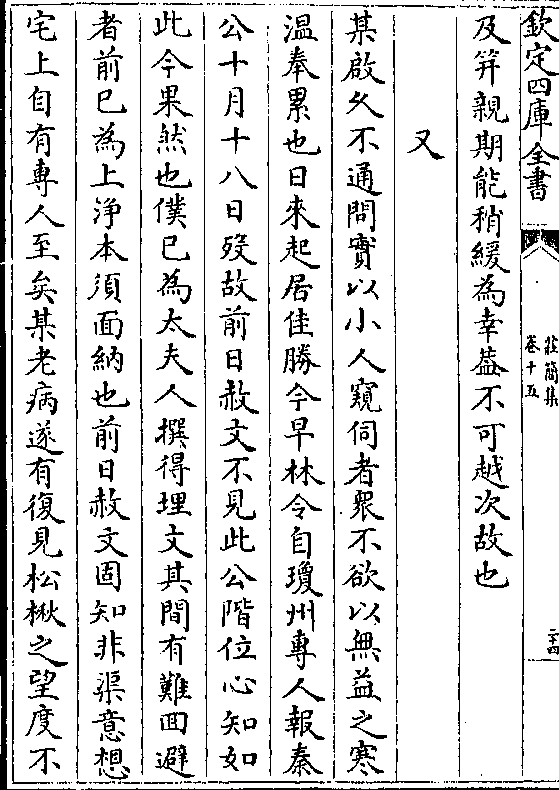 欽定四庫全書
莊簡集
卷十五
二十四
及笄親期能稍緩為幸葢不可越次故也
又
某啟久不通問實以小人窺伺者衆不欲以無益之寒
溫奉累也日來起居佳勝今早林令自瓊州專人報秦
公十月十八日殁故前日赦文不見此公階位心知如
此今果然也僕已為太夫人撰得埋文其間有難回避
者前已為上淨本須面納也前日赦文固知非渠意想
宅上自有專人至矣某老病遂有復見松楸之望度不